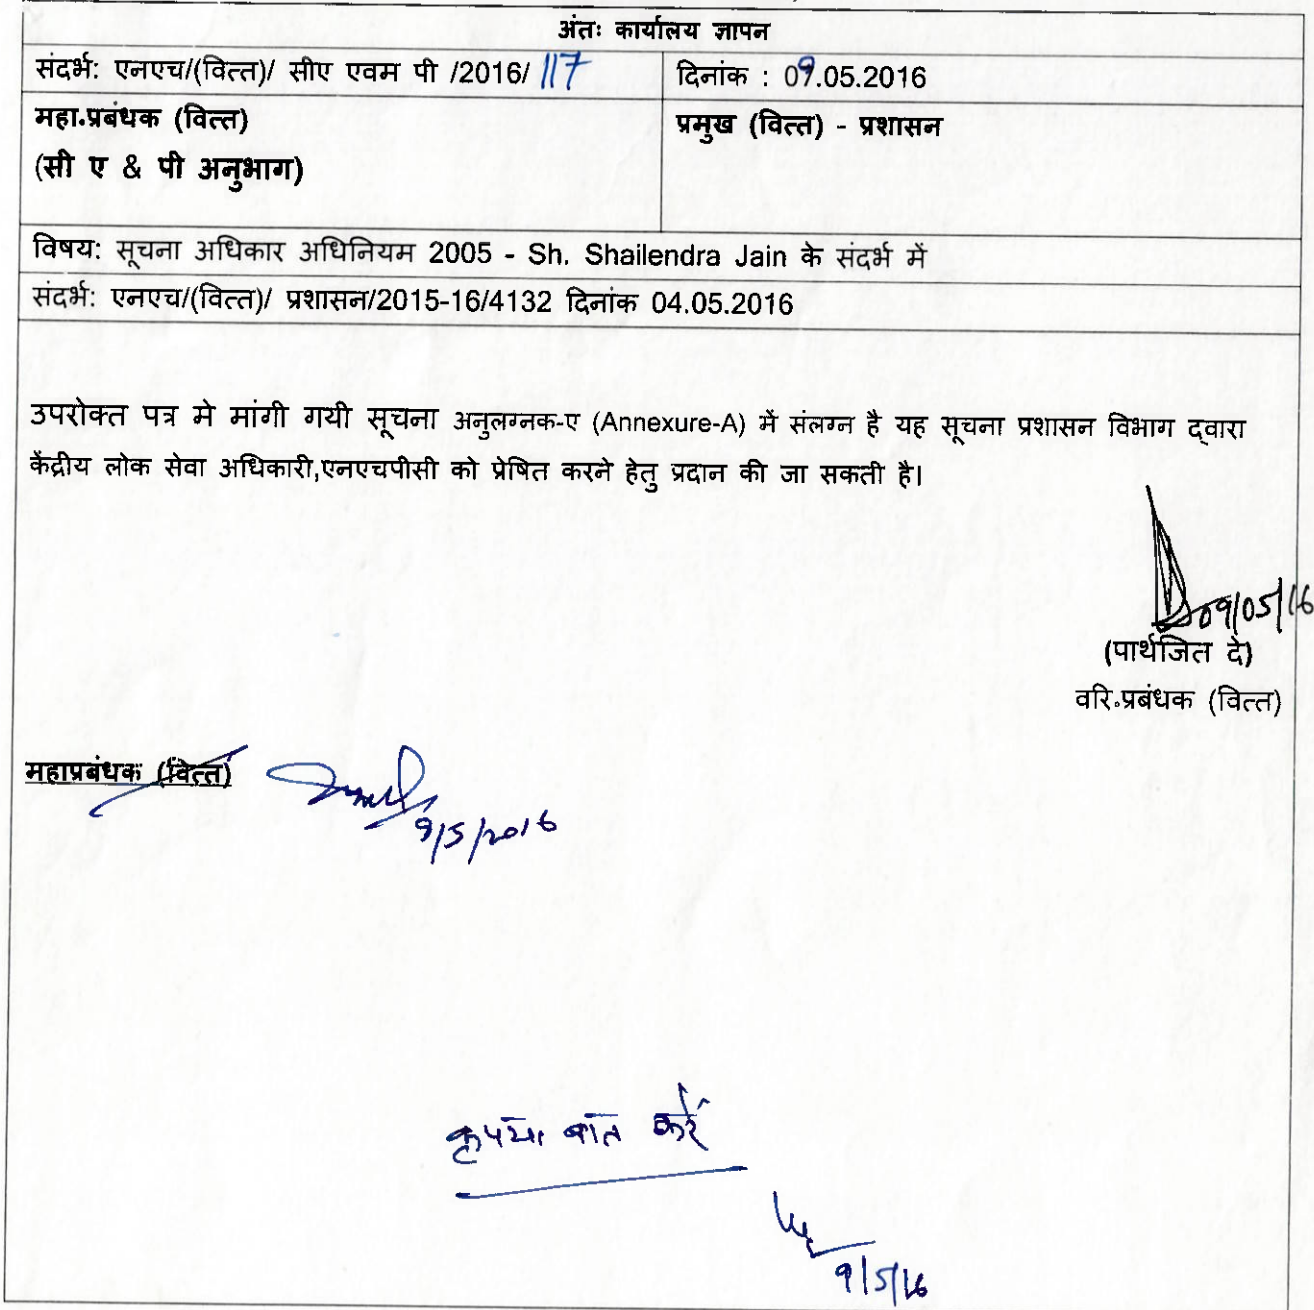 अंतः कार्यालय ज्ञापन
संदर्भ: एनएच/(वित्त)/ सीए एवम पी /2016/ 117
दिनांक : 09.05.2016
महा॰प्रबंधक (वित्त)
(सी ए & पी अनुभाग)
प्रमुख (वित्त) - प्रशासन
विषय: सूचना अधिकार अधिनियम 2005 - Sh. Shailendra Jain के संदर्भ में
संदर्भ: एनएच/(वित्त)/ प्रशासन/2015-16/4132 दिनांक 04.05.2016
उपरोक्त पत्र मे मांगी गयी सूचना अनुलग्नक-ए (Annexure-A) में संलग्न है यह सूचना प्रशासन विभाग द्वारा
केंद्रीय लोक सेवा अधिकारी,एनएचपीसी को प्रेषित करने हेतु प्रदान की जा सकती है।
09/05/16
(पार्थजित दे)
वरि॰प्रबंधक (वित्त)
महाप्रबंधक (वित्त)
9/5/2016
कृपया बात करें
9/5/16